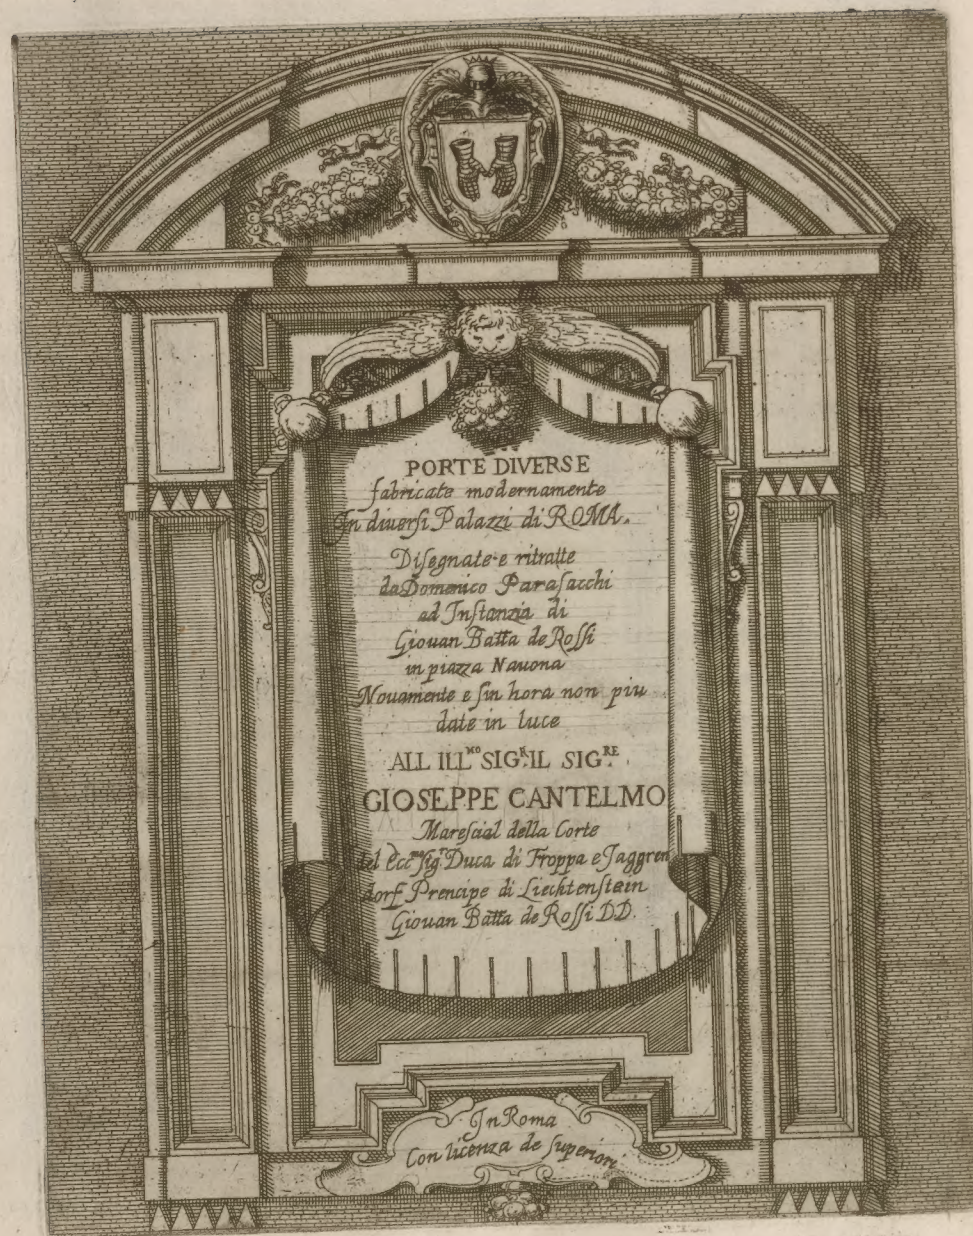 PORTE DIVERSE
fabricate modernamente
In diuerſi Palazzi di ROMA.
Diſegnate e ritratte
da Domenico Paraſacchi
ad Inſtanzia di
Giouan Batta de Roſſi
in piazza Nauona
Nouamente e ſin hora non piu
date in luce
ALL ILL.MO SIG.R IL SIG.RE
GIOSEPPE CANTELMO
Mareſcial della Corte
del ecc.mo ſig.r Duca di Troppa e Jaggren
dorf Prencipe di Liechtenſtein
Giouan Batta de Roſſi D.D.
In Roma
Con licenza de ſuperiori